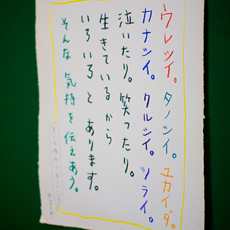 ウレシイ。タノシイ。ユカイダ。
カナシイ。クルシイ。ツライ。
泣いたり。笑ったり。
生きているから
いろいろとあります。
そんな気持を伝えあう。